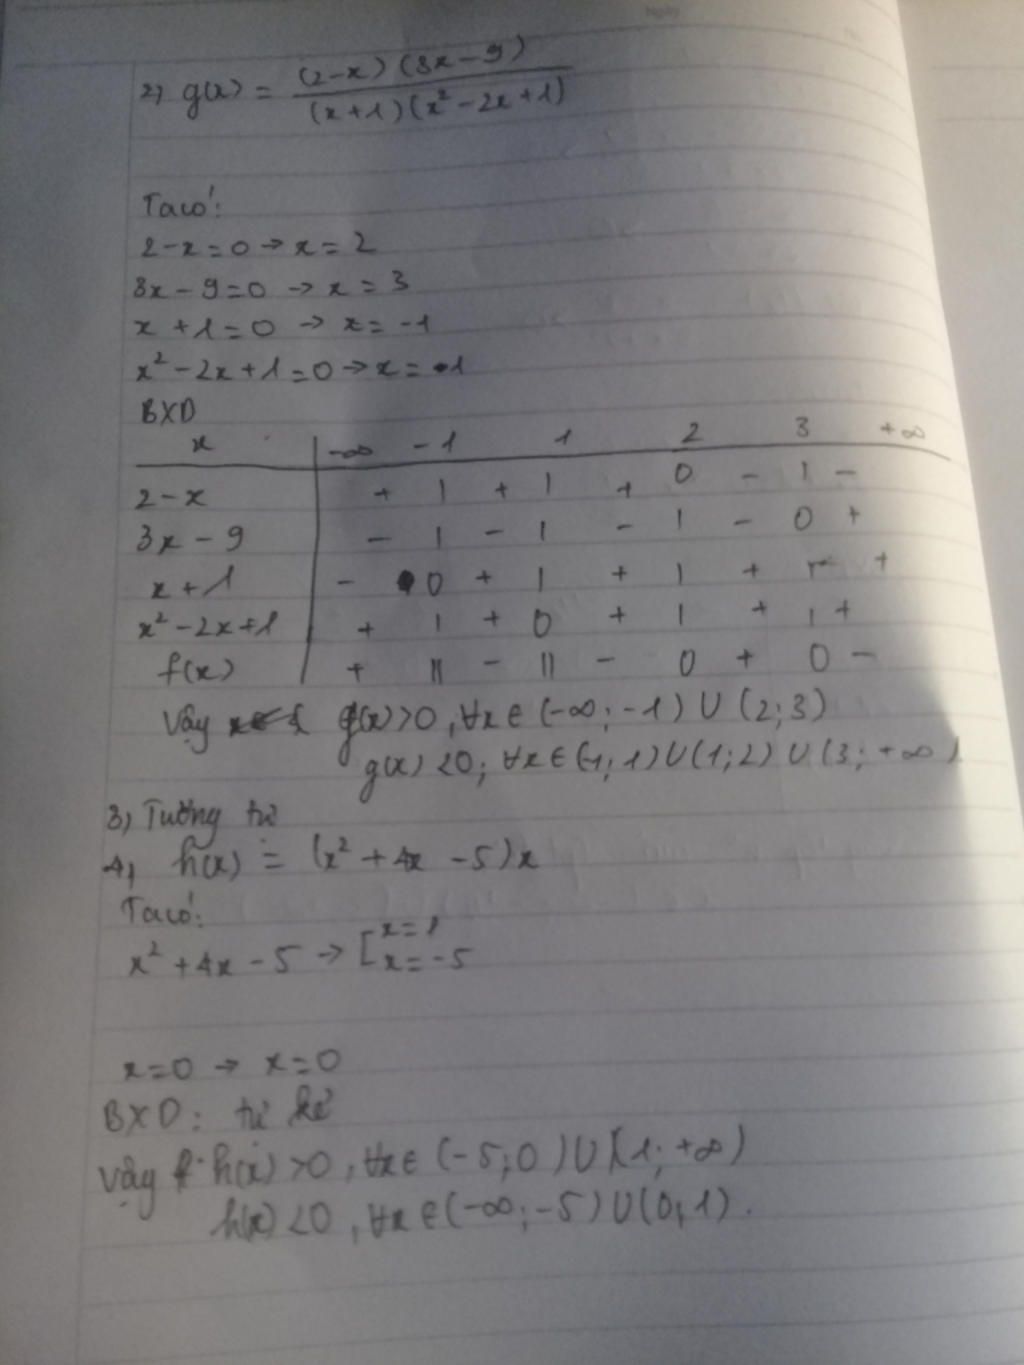 2, g(x) = (2-x)(3x-9) / (x+1)(x²-2x+1)
Ta có:
2-x=0 → x=2
3x-9=0 → x=3
x+1=0 → x=-1
x²-2x+1=0 → x=1
BXD
x | -∞ -1 1 2 3 +∞
2-x | + | + | + 0 - | -
3x-9 | - | - | - | - 0 +
x+1 | - 0 + | + | + +
x²-2x+1 | + | + 0 + | + | +
f(x) | + || - || - 0 + 0 -
Vậy g(x)>0, ∀x∈(-∞;-1)∪(2;3)
g(x)<0; ∀x∈(-1;1)∪(1;2)∪(3;+∞)
3, Tương tự
4, h(x) = (x²+4x-5)x
Ta có:
x²+4x-5 → [x=1
x=-5
x=0 → x=0
BXD: tự kẻ
Vậy h(x)>0, ∀x∈(-5;0)∪(1;+∞)
h(x)<0, ∀x∈(-∞;-5)∪(0;1).